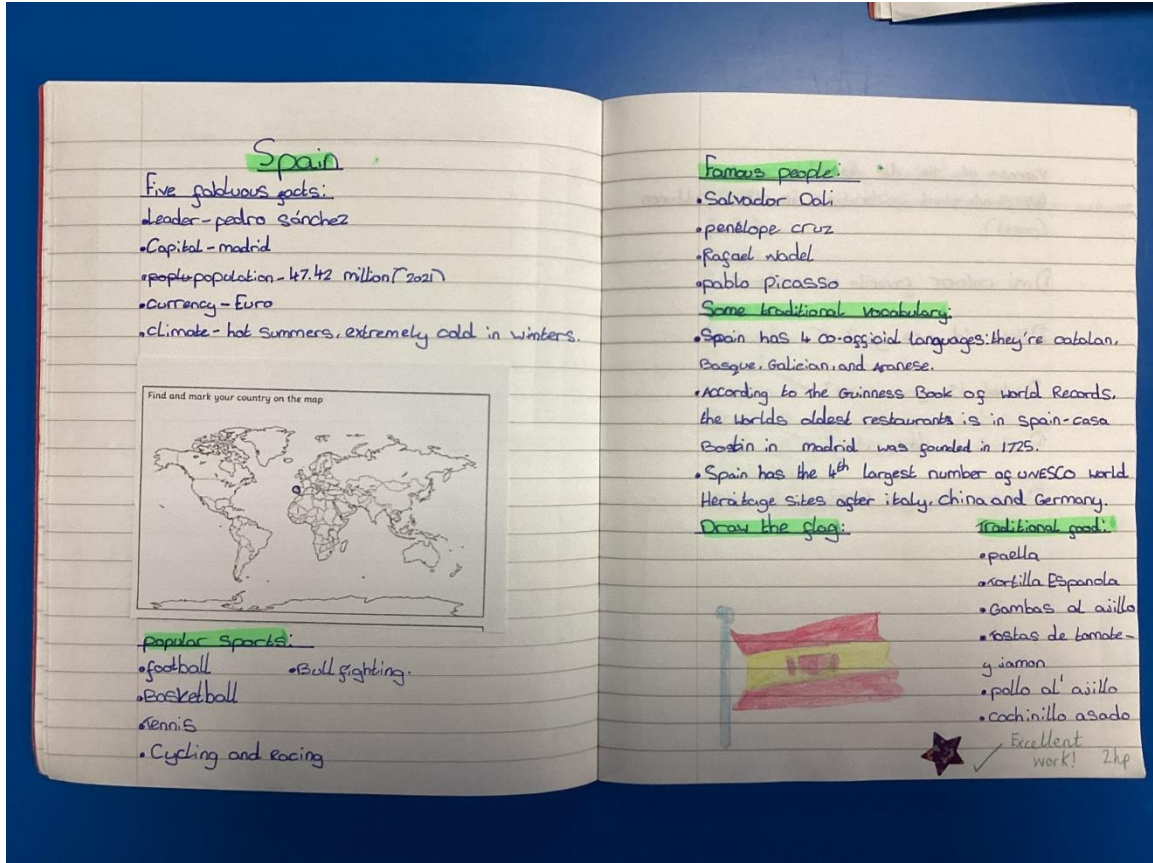 Spain
Five fabluous facts:
•Leader - pedro Sánchez
•Capital - madrid
•population - 47.42 million (2021)
•currency - Euro
•climate - hot summers, extremely cold in winters.
Find and mark your country on the map
popular sports:
•football •Bull fighting.
•Basketball
•Tennis
•Cycling and Racing
Famous people:
•Salvador Dali
•penélope cruz
•Rafael nadel
•pablo picasso
Some traditional vocabulary:
•Spain has 4 co-official languages: they're catalan,
Basque, Galician, and Aranese.
•According to the Guinness Book of world Records,
the worlds oldest restaurants is in Spain - casa
in madrid was founded in 1725.
•Spain has the 4th largest number of UNESCO world
Heritage sites after italy, China and Germany.
Draw the flag: Traditional food:
•paella
•Tortilla Espanola
•Gambas al ajillo
•Tostas de tomate -
y jamon
•pollo al' ajillo
•cochinillo asado
Excellent
work! 2hp